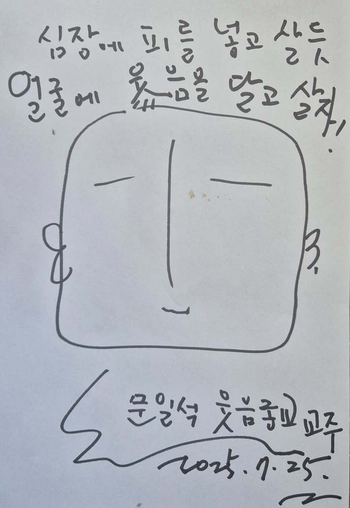 심장에 피를 넣고 살듯
얼굴에 웃음을 달고 살자!
문일석 웃음종교 교주
2025.7.25.